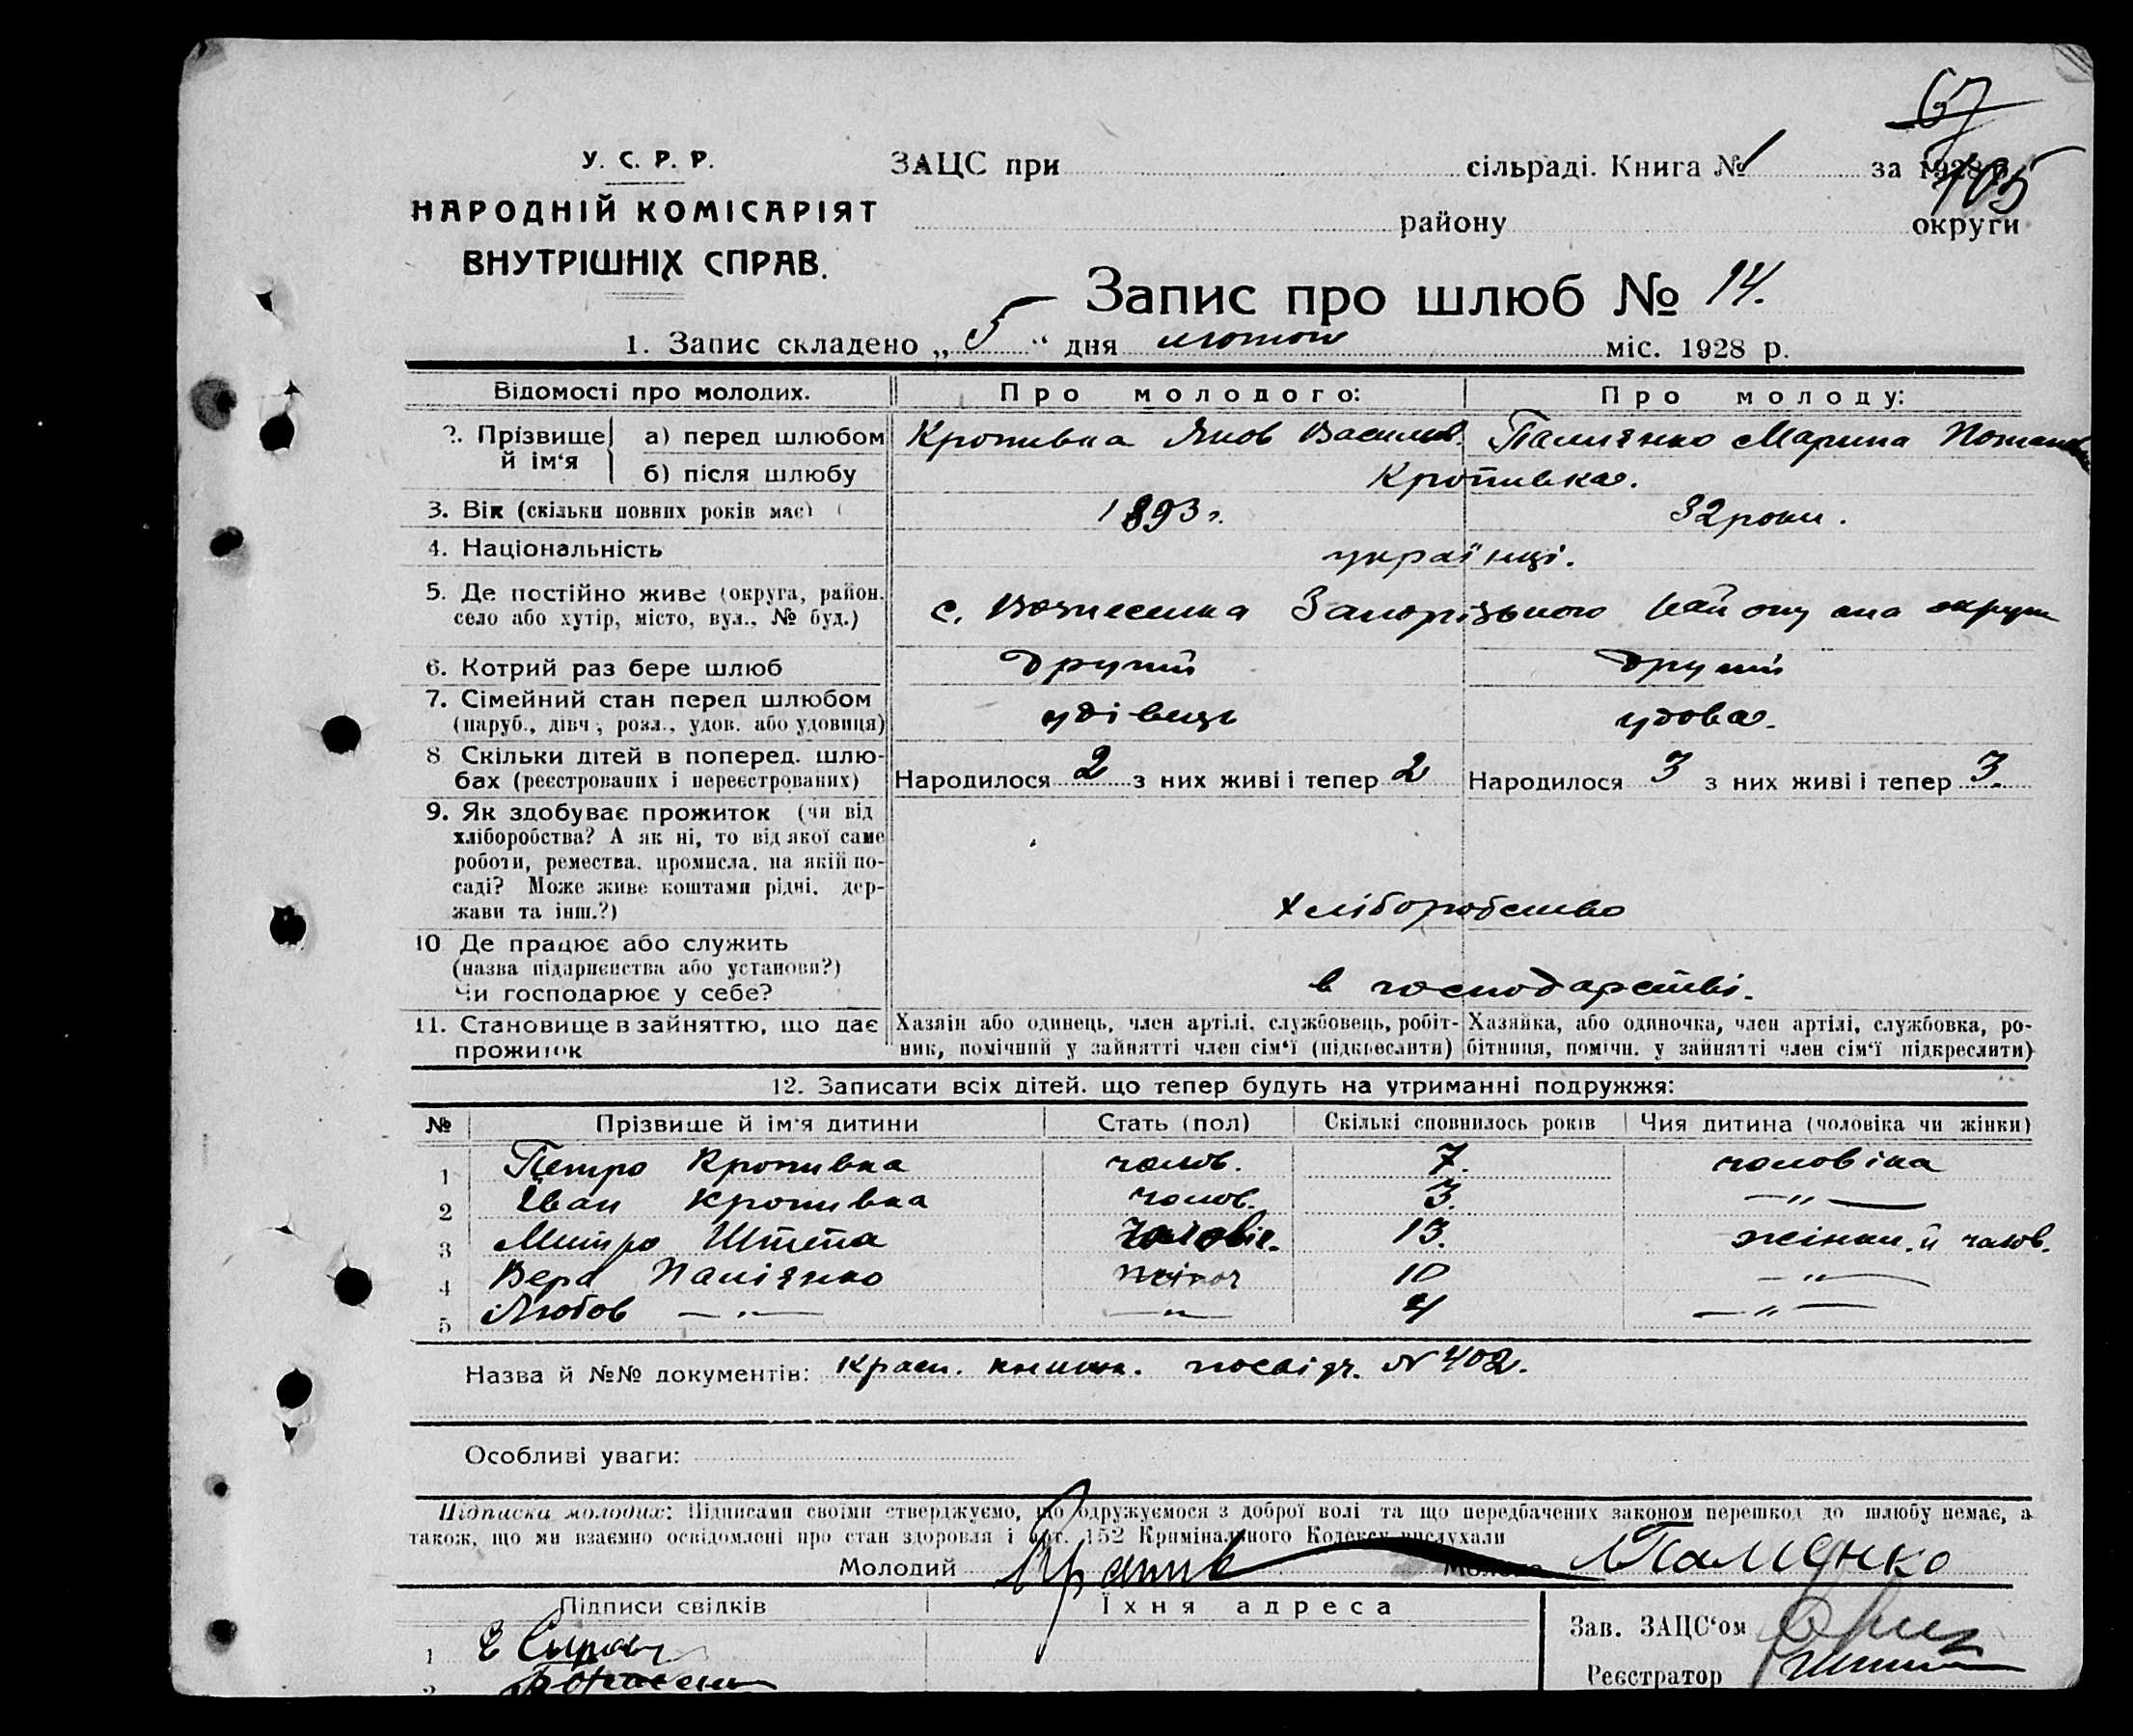 67
105
У. С. Р. Р.
НАРОДНІЙ КОМІСАРІЯТ
ВНУТРІШНІХ СПРАВ.
ЗАЦС при сільраді. Книга № 1 за 1928 р.
району округи
Запис про шлюб № 14.
1. Запис складено „ 5 “ дня лютого міс. 1928 р.
Відомості про молодих. Про молодого: Про молоду:
2. Прізвище й ім‘я а) перед шлюбом Кропивка Яков Васильов. Паліянко Марина Потапов
б) після шлюбу Кропивка.
3. Вік (скільки повних років має) 1893 г. 32 роки.
4. Національність українці.
5. Де постійно живе (округа, район, село або хутір, місто, вул., № буд.) с. Вознесенка Запорізького району та округи
6. Котрий раз бере шлюб другий другий
7. Сімейний стан перед шлюбом (паруб., дівч., розл., удов. або удовиця) удівець удова.
8 Скільки дітей в поперед. шлюбах (реєстрованих і нереєстрованих) Народилося 2 з них живі і тепер 2 Народилося 3 з них живі і тепер 3.
9. Як здобуває прожиток (чи від
хліборобства? А як ні, то від якої саме
роботи, ремества, промисла, на якій по-
саді? Може живе коштами рідні, дер-
жави та інш.?) хліборобство
10 Де працює або служить
(назва підприємства або установи?)
Чи господарює у себе? в господарстві.
11. Становище в зайняттю, що дає прожиток
Хазяїн або одинець, член артілі, службовець, робіт-
ник, помічний у зайнятті член сім‘ї (підкреслити)
Хазяйка, або одиночка, член артілі, службовка, ро-
бітниця, помічн. у зайнятті член сім‘ї підкреслити)
12. Записати всіх дітей. що тепер будуть на утриманні подружжя:
№ Прізвище й ім‘я дитини Стать (пол) Скількі сповнилось років Чия дитина (чоловіка чи жінки)
1 Петро Кропивка чолов. 7. чоловіка
2 Іван Кропивка чолов. 3. — „ —
3 Митро Штепа чоловіч. 13. жінки. й чолов.
4 Вера Паліянко жіноч 10 — „ —
5 Любов — „ — — „ — 4 — „ —
Назва й №№ документів: посвідч. N 402.
Особливі уваги:
Підписка молодих: Підписами своїми стверджуємо, що одружуємося з доброї волі та що передбачених законом перешкод до шлюбу немає, а
також, що ми взаємно освідомлені про стан здоровля і арт. 152 Кримінального Кодексу вислухали
Молодий Молода МПалиянко
Підписи свідків Їхня адреса
1
2
Зав. ЗАЦС‘ом
Реєстратор